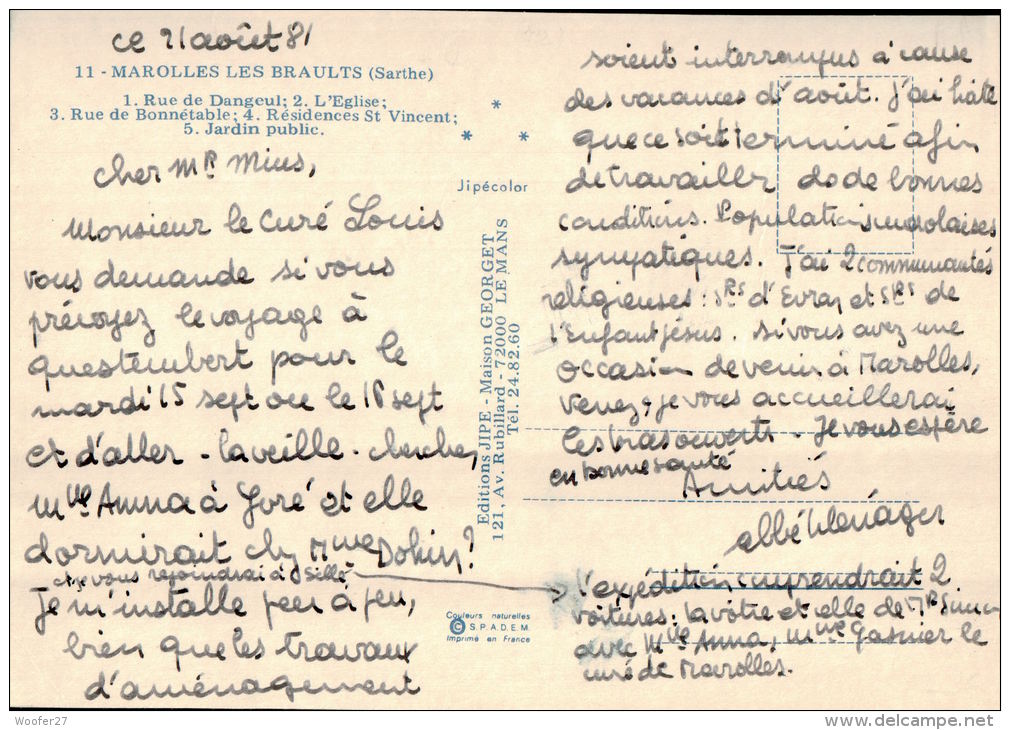 ce 21 août 81
11 - MAROLLES LES BRAULTS (Sarthe)
1. Rue de Dangeul; 2. L'Eglise;
3. Rue de Bonnétable; 4. Résidences St Vincent;
5. Jardin public.
cher Mr Mius,
Monsieur le Curé Louis
vous demande si vous
prévoyez le voyage à
questembert pour le
mardi 15 sept ou le 18 sept
et d'aller - la veille - chercher
Mlle Anna à Joré et elle
dormirait chez Mme Dohin?
et je vous rejoindrai à Sillé
Je m'installe peu à peu,
bien que les travaux
d'aménagement
Jipécolor
Editions JIPE - Maison GEORGET
121, Av. Rubillard - 72000 LE MANS
Tél. 24.82.60
Couleurs naturelles
© S.P.A.D.E.M.
Imprimé en France
soient interrompus à cause
des vacances d'août. J'ai hâte
que ce soit terminé afin
de travailler ds de bonnes
conditions. Populations marolaises
sympatiques. J'ai 2 communautés
religieuses: Srs d'Evron et Srs de
l'Enfant Jésus. Si vous avez une
occasion de venir à Marolles,
venez, je vous accueillerai
les bras ouverts. Je vous espère
en bonne santé
Amitiés
abbé Ménager
l'expédition comprendrait 2
voitures: la vôtre et celle de Mr Simon
avec Mlle Anna, Mme Gasnier le
curé de Marolles.
Woofer27
www.delcampe.net